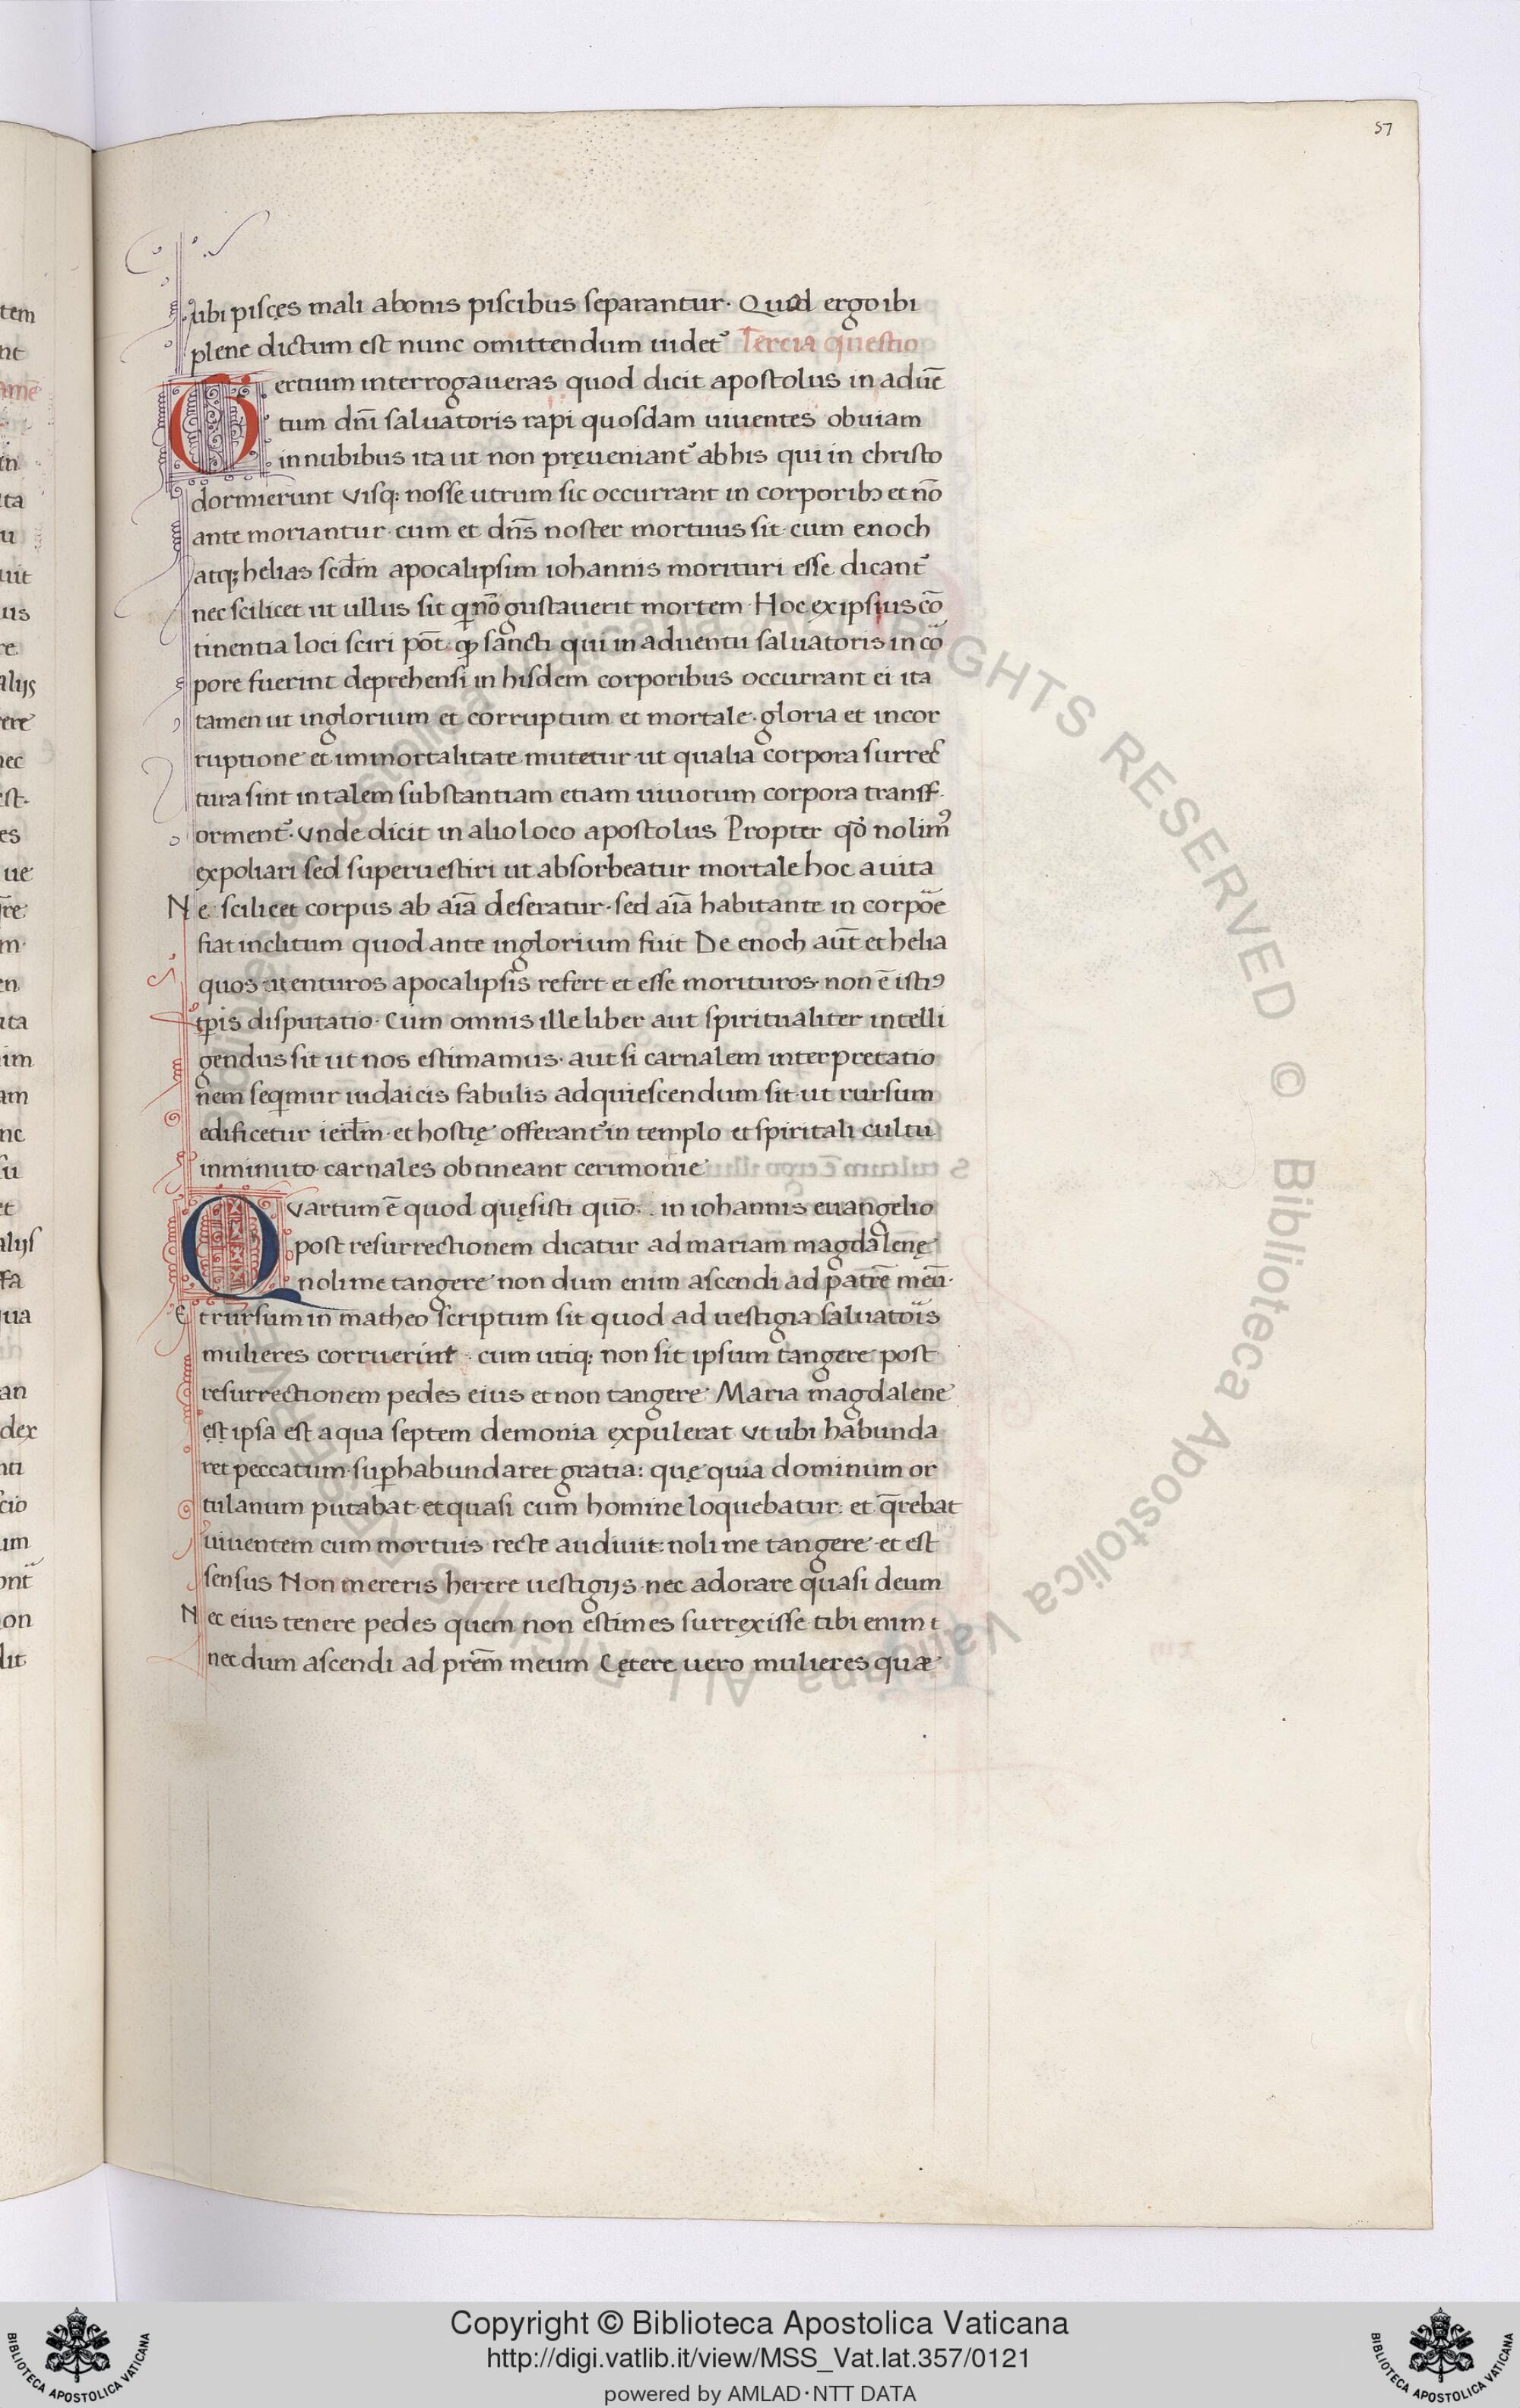 57
ubi pisces mali abonis piscibus separantur· Quid ergo ibi
plene dictum est nunc omittendum uidet᷑ Tercia questio
Tertium interrogaueras quod dicit apostolus in aduē
tum dn̄i saluatoris rapi quosdam uiuentes obuiam
in nubibus ita ut non pręueniant᷑ ab his qui in christo
dormierunt visq; nosse utrum sic occurrant in corporibꝫ et nō
ante moriantur· cum et dn̄s noster mortuus sit· cum enoch
atq; helias scd̄m apocalipsim iohannis morituri esse dicant᷑
nec scilicet ut ullus sit q nō gustauerit mortem· Hoc ex ipsius cō
tinentia loci sciri pōt· ꝙ sancti qui in aduentu saluatoris in cō
pore fuerint deprehensi in hisdem corporibus occurrant ei ita
tamen ut inglorium et corruptum et mortale· gloria et incor
ruptione et immortalitate mutetur ut qualia corpora surrec̄
tura sint in talem substantiam etiam uiuorum corpora transf
orment᷑· vnde dicit in alio loco apostolus Propter qđ nolimꝰ
expoliari sed superuestiri ut absorbeatur mortale hoc a uita
Ne scilicet corpus ab aīa deseratur· sed aīa habitante in corpōe
fiat inclitum quod ante inglorium fuit De enoch aūt et helia
quos uenturos apocalipsis refert et esse morituros· non ē istiꝰ
tp̄is disputatio· Cum omnis ille liber aut spiritualiter intelli
gendus sit ut nos estimamus· aut si carnalem interpretatio
nem seqmur iudaicis fabulis adquiescendum sit· ut rursum
edificetur ierl̄m· et hostię offerant᷑ in templo et spiritali cultu
inminuto· carnales obtineant cerimonie
Qvartum ē quod quęsisti quō· in iohannis euangelio
post resurrectionem dicatur ad mariam magdalenę
noli me tangere non dum enim ascendi ad patrē meū·
Et rursum in matheo scriptum sit quod ad uestigia saluatoīs
mulieres corruerint· cum utiq; non sit ipsum tangere post
resurrectionem pedes eius et non tangere Maria magdalene
est ipsa est a qua septem demonia expulerat vt ubi habunda
ret peccatum· suꝑhabundaret gratia: quę quia dominum or
tulanum putabat· et quasi cum homine loquebatur: et q̄rebat
uiuentem cum mortuis recte audiuit: noli me tangere et est
sensus Non mereris herere uestigijs nec adorare quasi deum
Nec eius tenere pedes quem non estimes surrexisse tibi enim t
nec dum ascendi ad prēm meum Cętere uero mulieres quæ
Copyright © Biblioteca Apostolica Vaticana
http://digi.vatlib.it/view/MSS_Vat.lat.357/0121
powered by AMLAD·NTT DATA